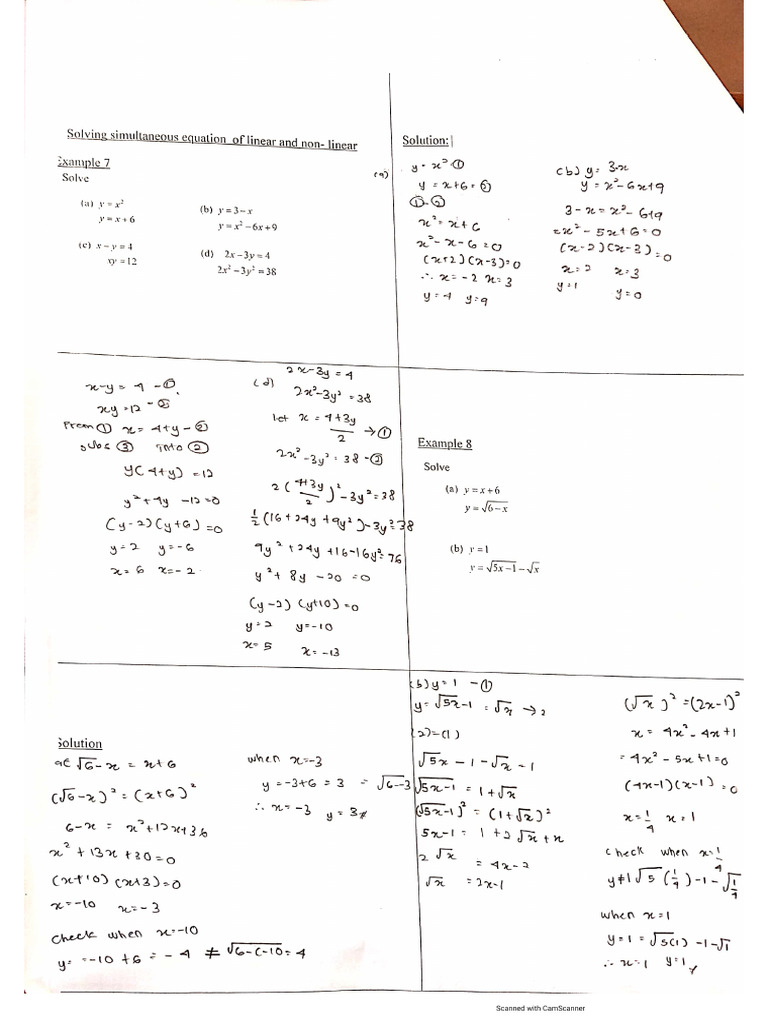 Solving simultaneous equation of linear and non- linear
Example 7
Solve
(a) y = x²
y = x + 6
(b) y = 3 − x
y = x² − 6x + 9
(c) x − y = 4
xy = 12
(d) 2x − 3y = 4
2x² − 3y² = 38
Solution:
(a) y = x² ①
y = x+6 = ②
①-②
x² = x+6
x² - x - 6 = 0
(x+2)(x-3)=0
∴ x = -2 x = 3
y = 4 y = 9
(b) y = 3-x
y = x² - 6x+9
3-x = x² - 6x+9
= x² - 5x + 6 = 0
(x-2)(x-3)=0
x = 2 x = 3
y = 1 y = 0
x-y = 4 - ①
xy = 12 - ②
From ① x = 4+y - ③
subs ③ into ②
y(4+y) = 12
y² + 4y - 12 = 0
(y-2)(y+6) = 0
y = 2 y = -6
x = 6 x = -2
(d) 2x-3y = 4
2x² - 3y² = 38
let x = 4+3y / 2 → ①
2x² - 3y² = 38 - ②
2(4+3y / 2)² - 3y² = 38
1/2(16 + 24y + 9y²) - 3y² = 38
9y² + 24y + 16 - 16y² = 76
y² + 8y - 20 = 0
(y-2)(y+10) = 0
y = 2 y = -10
x = 5 x = -13
Example 8
Solve
(a) y = x + 6
y = √(6 − x)
(b) y = 1
y = √(5x − 1) − √x
Solution
√(6-x) = x+6
(√(6-x))² = (x+6)²
6-x = x² + 12x + 36
x² + 13x + 30 = 0
(x+10)(x+3) = 0
x = -10 x = -3
Check when x = -10
y = -10 + 6 = -4 ≠ √(6-(-10)) = 4
when x = -3
y = -3+6 = 3 = √(6--3)
∴ x = -3 y = 3
(b) y = 1 - ①
y = √(5x-1) = √x → 2
(2)=(1)
√(5x-1) - √x - 1
√(5x-1) = 1+√x
(√(5x-1))² = (1+√x)²
5x-1 = 1 + 2√x + x
2√x = 4x-2
√x = 2x-1
(√x)² = (2x-1)²
x = 4x² - 4x + 1
= 4x² - 5x + 1 = 0
(4x-1)(x-1) = 0
x = 1/4 x = 1
Check when x = 1/4
y ≠ 1 √(5(1/4)-1) - √(1/4)
when x = 1
y = 1 = √(5(1)-1) - √1
∴ x = 1 y = 1
Scanned with CamScanner